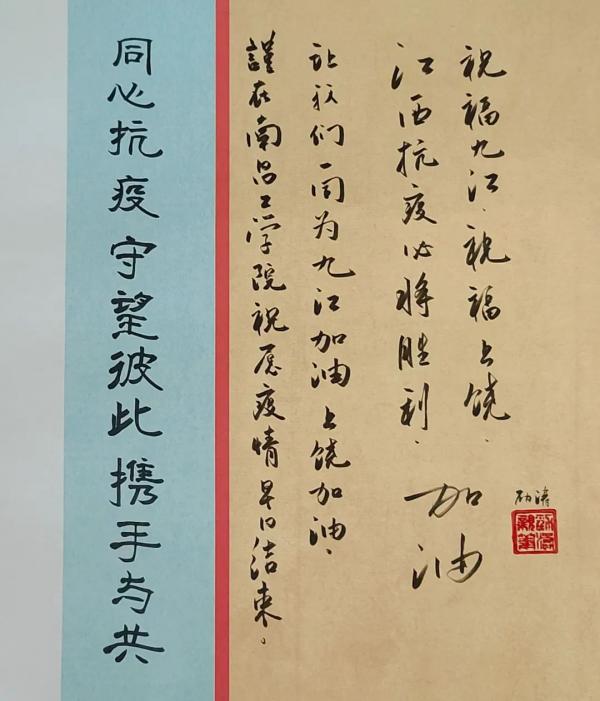 祝福九江，祝福上饶，
江西抗疫必将胜利，
加油
让我们一同为九江加油上饶加油，
謹在南昌工学院祝愿疫情早日结束。
同心抗疫守望彼此携手与共